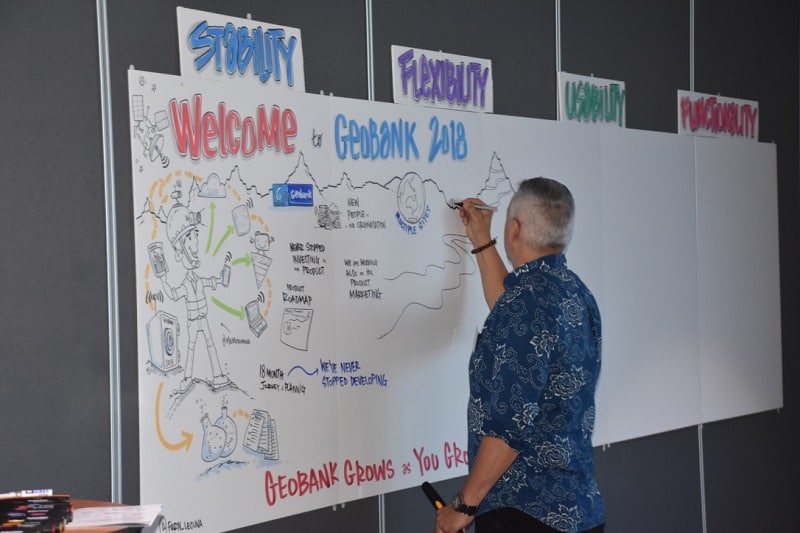 STABILITY
FLEXIBILITY
USABILITY
FUNCTIONALITY
WELCOME to GEOBANK 2018
Geobank
NEW
PEOPLE
OUR ORGANISATION
MULTIPLE SITES
NEVER STOPPED
INVESTING IN
OUR PRODUCT
WE ARE WORKING
ALSO ON THE
PRODUCT
MARKETING
PRODUCT
ROADMAP
18 MONTH
JOURNEY PLANNING
WE'VE NEVER
STOPPED DEVELOPING
GEOBANK GROWS as YOU GRO